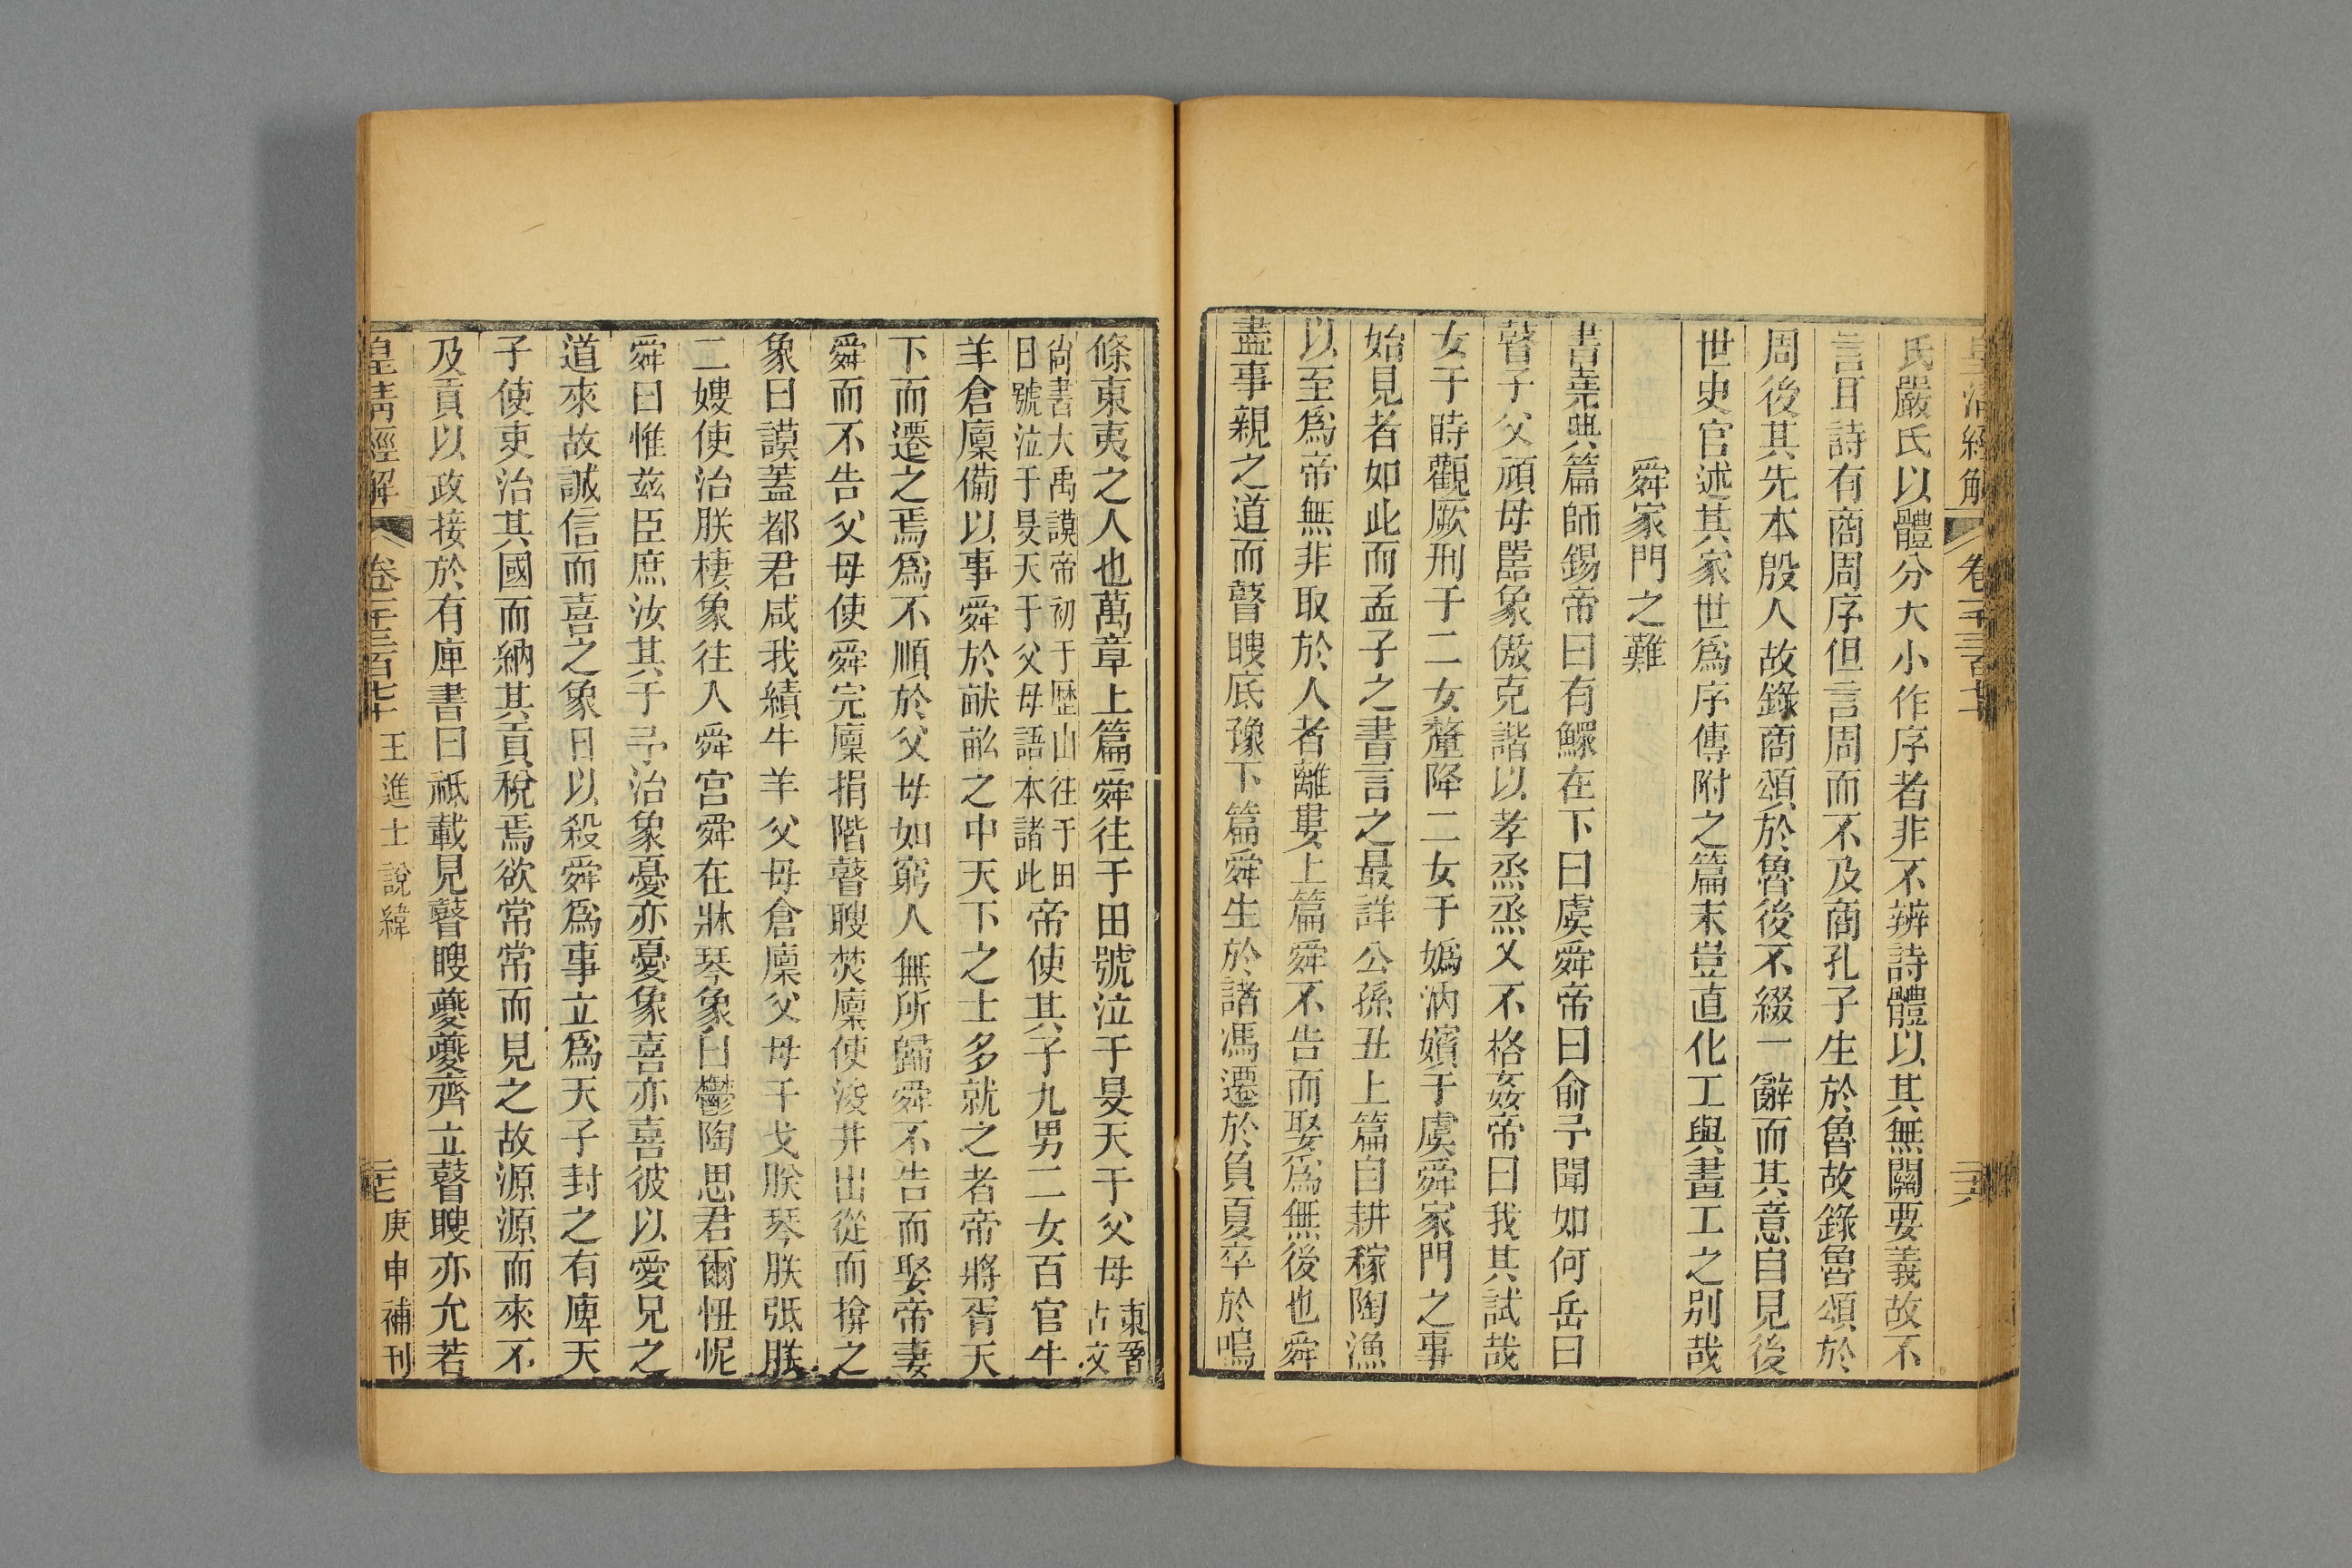 皇清經解
卷一千三百七十
二十六
氏嚴氏以體分大小作序者非不辨詩體以其無關要義故不
言耳詩有商周序但言周而不及商孔子生於魯故錄魯頌於
周後其先本殷人故錄商頌於魯後不綴一辭而其意自見後
世史官述其家世爲序傳附之篇末豈直化工與畫工之别哉
舜家門之難
書堯典篇師錫帝曰有鰥在下曰虞舜帝曰俞予聞如何岳曰
瞽子父頑母嚚象傲克諧以孝烝烝乂不格姦帝曰我其試哉
女于時觀厥刑于二女釐降二女于嬀汭嬪于虞舜家門之事
始見者如此而孟子之書言之最詳公孫丑上篇自耕稼陶漁
以至爲帝無非取於人者離婁上篇舜不告而娶爲無後也舜
盡事親之道而瞽瞍底豫下篇舜生於諸馮遷於負夏卒於鳴
條東夷之人也萬章上篇舜往于田號泣于旻天于父母東晉古文
尙書大禹謨帝初于歷山往于田日號泣于旻天于父母語本諸此帝使其子九男二女百官牛
羊倉廩備以事舜於畎畝之中天下之士多就之者帝將胥天
下而遷之焉爲不順於父母如窮人無所歸舜不告而娶帝妻
舜而不告父母使舜完廩捐階瞽瞍焚廩使浚井出從而揜之
象曰謨蓋都君咸我績牛羊父母倉廩父母干戈朕琴朕弤朕
二嫂使治朕棲象往入舜宮舜在牀琴象曰鬱陶思君爾忸怩
舜曰惟茲臣庶汝其于予治象憂亦憂象喜亦喜彼以愛兄之
道來故誠信而喜之象日以殺舜爲事立爲天子封之有庳天
子使吏治其國而納其貢稅焉欲常常而見之故源源而來不
及貢以政接於有庳書曰祗載見瞽瞍夔夔齊立瞽瞍亦允若
皇清經解
卷一千三百七十
王進士說緯
二十七
庚申補刊